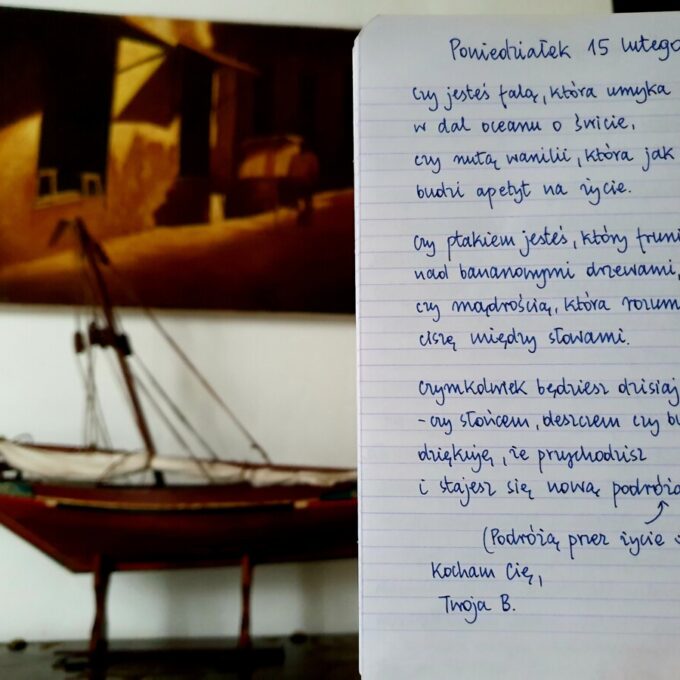 Poniedziałek 15 lutego
czy jesteś falą, która umyka
w dal oceanu o świcie,
czy nutą wanilii, która jak
budzi apetyt na życie.
czy ptakiem jesteś, który
nad bananowymi drzewami,
czy mądrością, która
ciszę między słowami.
czymkolwiek będziesz dzisiaj
- czy słońcem, deszczem czy
dziękuję, że przychodzisz
i stajesz się nową podróżą
(Podróżą przez życie
Kocham Cię,
Twoja B.